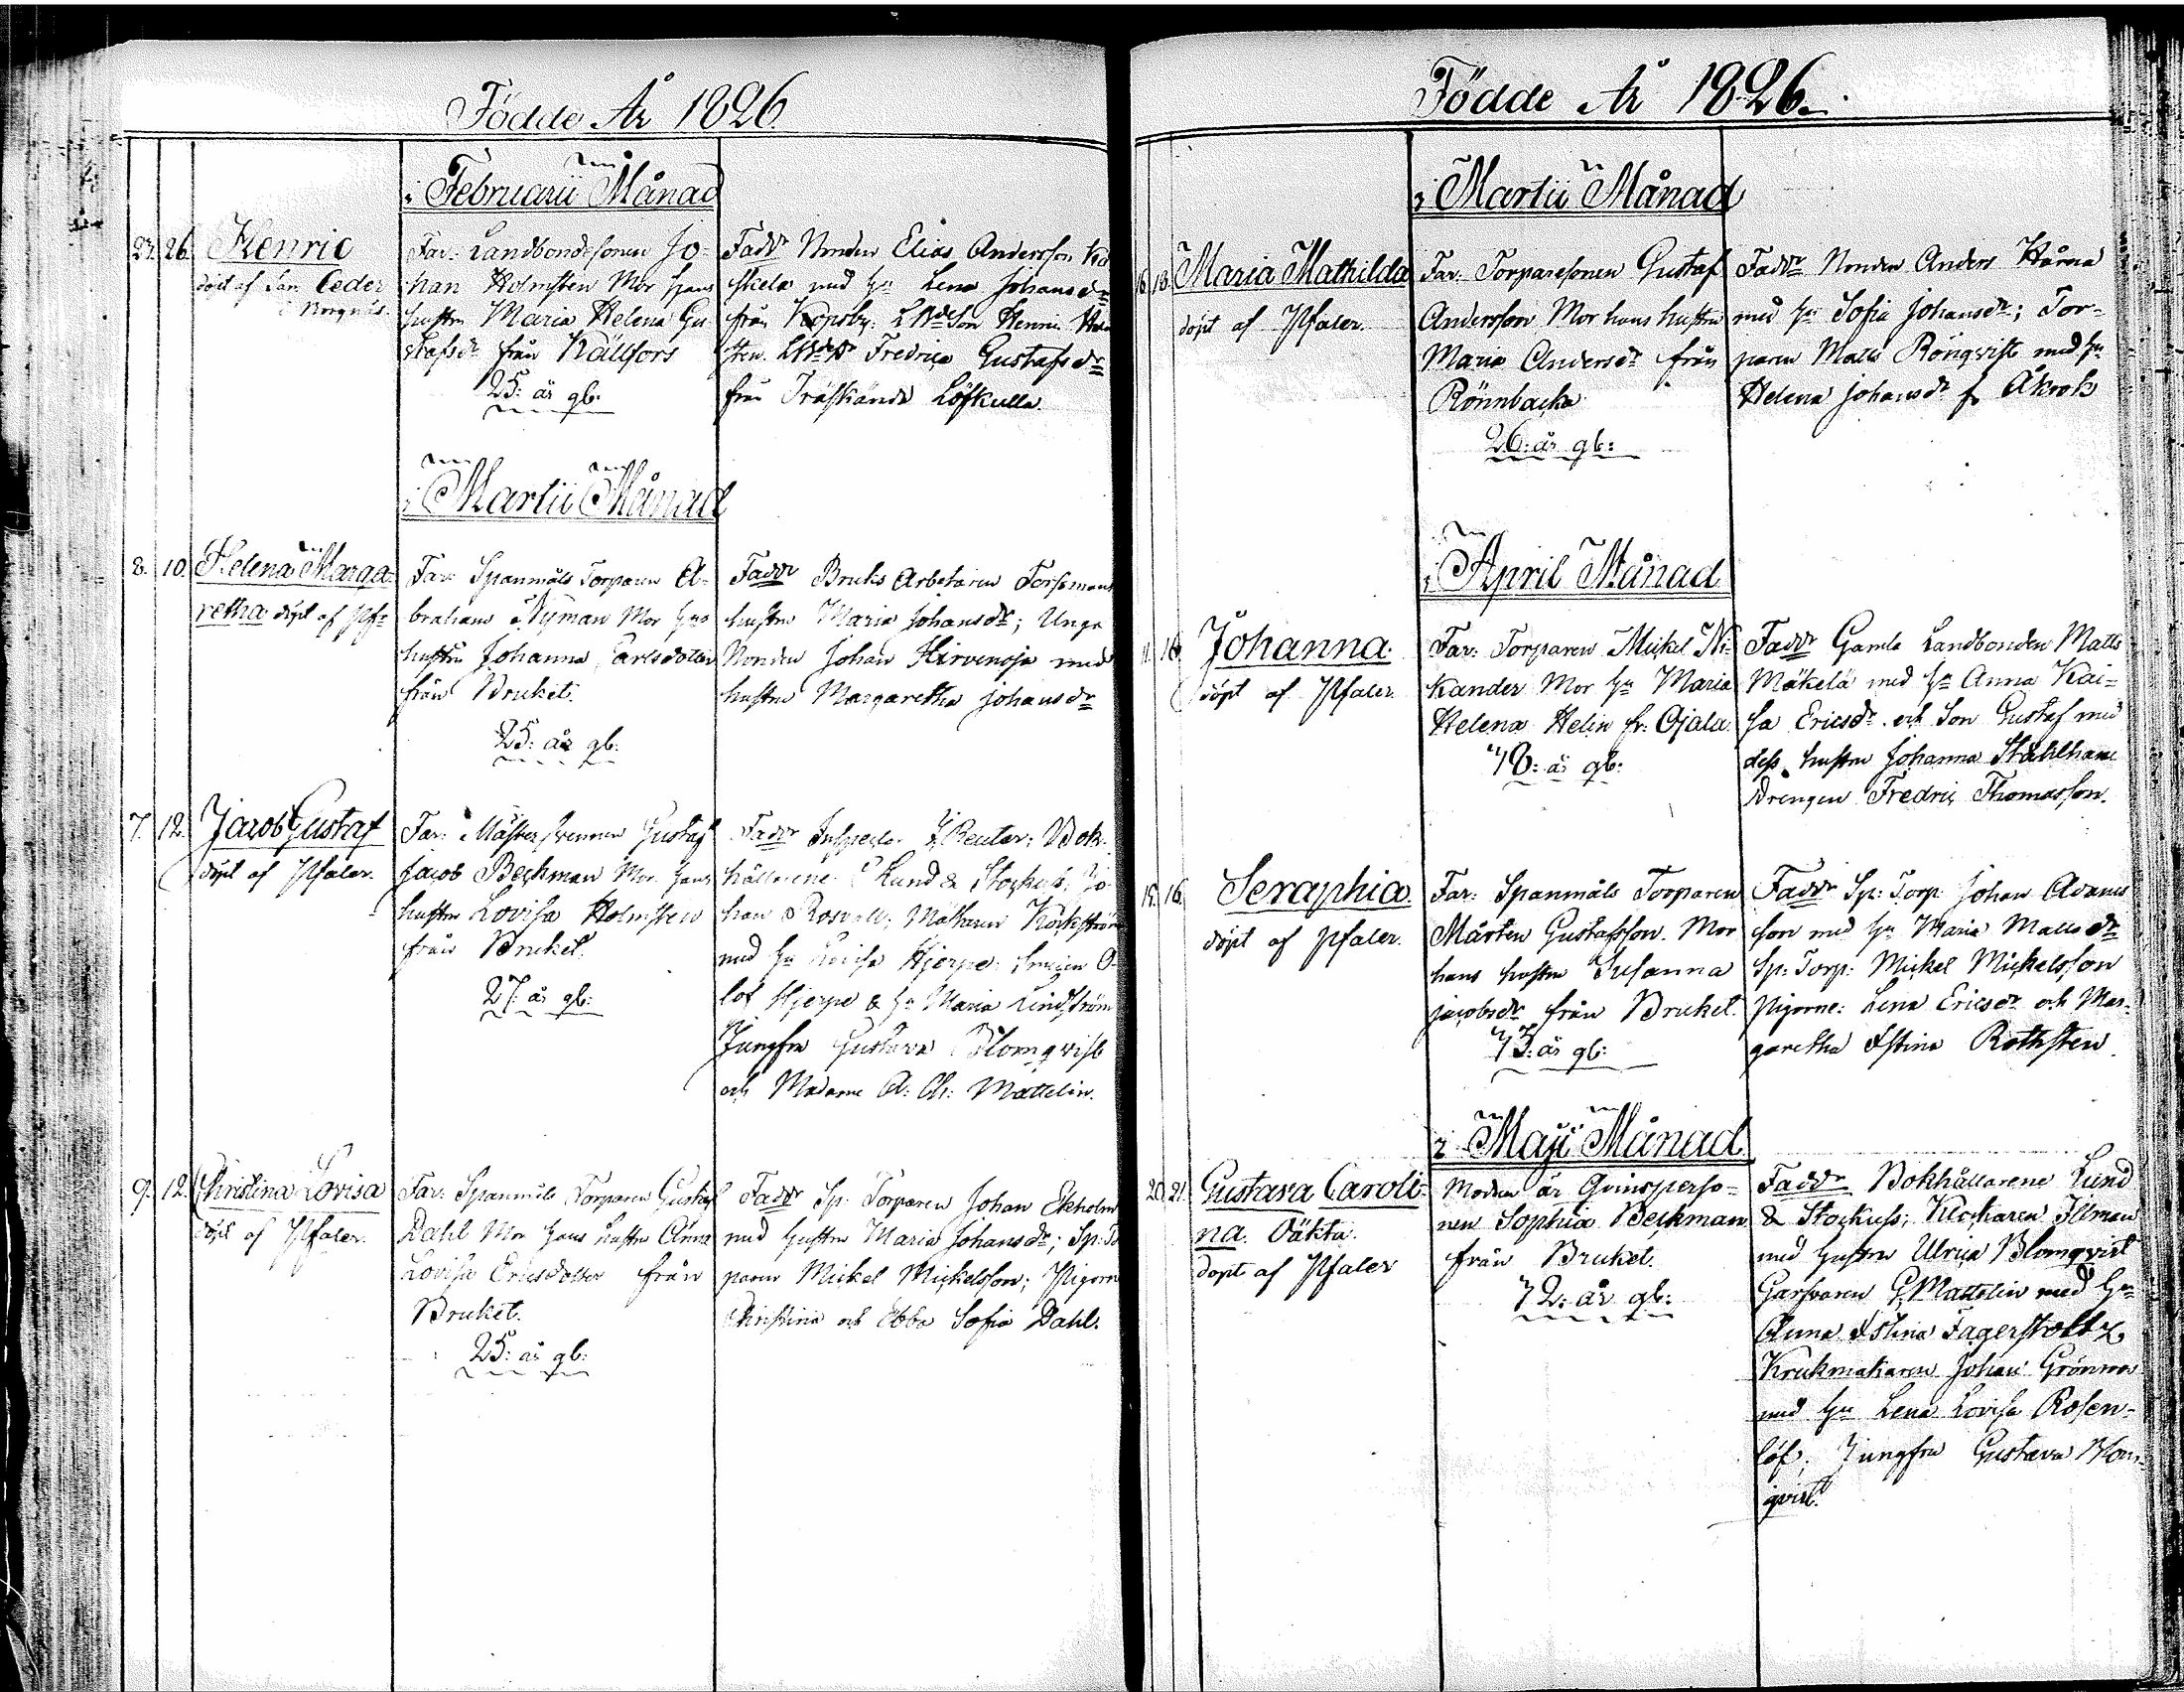 Födde År 1826.
i Februarii Månad
27. 26. Henric
döpt af Ceder
Far: Landbondesonen Jo-
han Holmsten Mor hans
hustru Maria Helena Gu
stafsdr från Källfors
25: år gb.
Faddr Bonden Elias Andersson
med hu Lena Johansdr
från Kopsby: Henric
Fredrica Gustafsdr
från Träskände Löfkulla.
i Martii Månad
8. 10. Helena Marga-
retha döpt af Pfr
Far: Spanmåls Torparen A-
braham Nyman Mor hans
hustru Johanna Carlsdotter
från Bruket.
25: år gb.
Faddr Bruks Arbetaren Forssmans
hustru Maria Johansdr; Unga
Bonden Johan Hirvenoja med
hustru Margaretha Johansdr
7. 12. Jacob Gustaf
döpt af Pfaler.
Far: Mästersvennen Gustaf
Jacob Beckman Mor hans
hustru Lovisa Holmsten
från Bruket.
27: år gb:
Faddr Inspector J. Reuter; Bok-
hållarene Lund & Stockus; Jo-
han Rosvall; Mästaren
med hu Lovisa Hjerpe: Smeden O-
lof Hjerpe & hu Maria Lindström
Jungfru Gustava Blomqvist
och Madame A: Ch: Mattelin.
9. 12. Christina Lovisa
döpt af Pfaler.
Far: Spanmåls Torparen Gustaf
Dahl Mor hans hustru Anna
Lovisa Ericsdotter från
Bruket.
25: år gb:
Faddr Sp: Torparen Johan Ekholm
med hustru Maria Johansdr; Sp: To
paren Mickel Mickelsson; Pigorn
Christina och Ebba Sofia Dahl.
Födde År 1826.
i Martii Månad
Maria Mathilda
döpt af Pfaler.
Far: Torparesonen Gustaf
Andersson Mor hans hustru
Maria Andersdr från
Rönnbacka
26: år gb:
Faddr Bonden Anders Hårna
med hu Sofia Johansdr; Tor-
paren Matts Rönqvist med hu
Helena Johansdr fr Åkrok
i April Månad
Johanna.
döpt af Pfaler.
Far: Torparen Mickel Ni-
kander Mor hu Maria
Helena Helin fr: Ojala.
48: år gb:
Faddr Gamla Landbonden Matts
Mäkelä med hu Anna Kai-
sa Ericsdr och Son Gustaf med
dess hustru Johanna Stählhane
Drengen Fredric Thomasson.
15. 16. Seraphia.
döpt af Pfaler.
Far: Spanmåls Torparen
Mårten Gustafsson. Mor
hans hustru Susanna
Jacobsdr från Bruket.
43: år gb:
Faddr Sp: Torp: Johan Adams
son med hu Maria Mattsdr
Sp: Torp: Mickel Mickelsson
Pigorne: Lena Ericsdr och Mar-
garetha Stina Rothsten
i Maji Månad
20. 21. Gustava Caroli-
na. Oäkta.
döpt af Pfaler
Modren är Qvinsperso-
nen Sophia Beckman
från Bruket.
42: år gb:
Faddr Bokhållarene Lund
& Stockuss; Klockaren Illman
med hustru Ulrica Blomqvist
Garfvaren G. Mattelin med hu
Anna Stina Fagerstoltz
Krukmakaren Johan Grönroos
med hu Lena Lovisa Rosen-
löf; Jungfru Gustava Blom-
qvist.